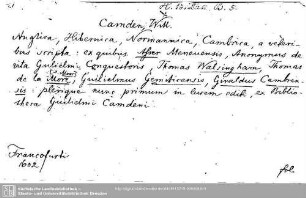 H. Britan. B. 5.
Camden, Will.
Anglica, Hibernica, Normannica, Cambrica, a veteri-
bus scripta: ex quibus Asser Menevensis, Anonymus de
vita Gulielmi Conquestoris, Thomas Walsingham, Thomas
de la More, Gulielmus Gemiticensis, Giraldus Cambren-
sis: plerique nunc primum in lucem editi, ex Biblio-
theca Guilielmi Camdeni.
Francofurti
1602/
fol.
Sächsische Landesbibliothek -
Staats- und Universitätsbibliothek Dresden